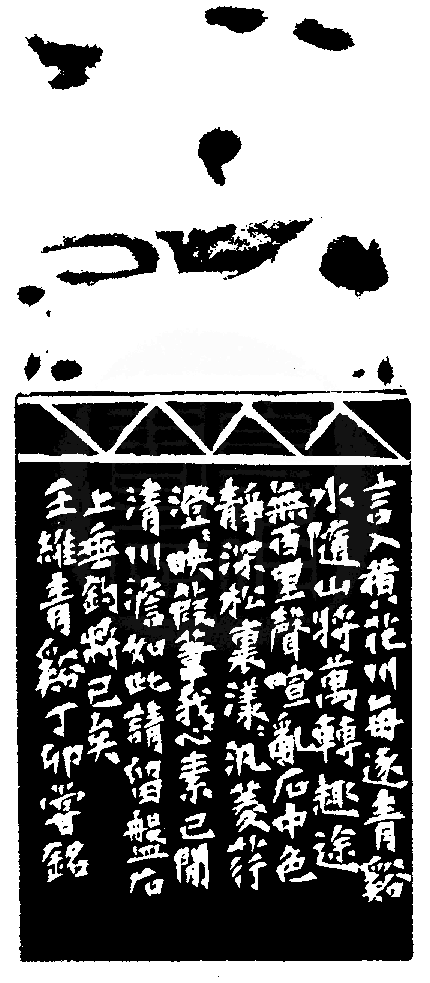 言入橫花川每逐青谿
水隨山將萬轉趣途
無百里聲喧亂石中色
靜深松裏漾〻汎菱荇
澄〻映葭葦我心素已閒
清川澹如此請留盤石
上垂釣將已矣
王維青谿丁卯嘗銘